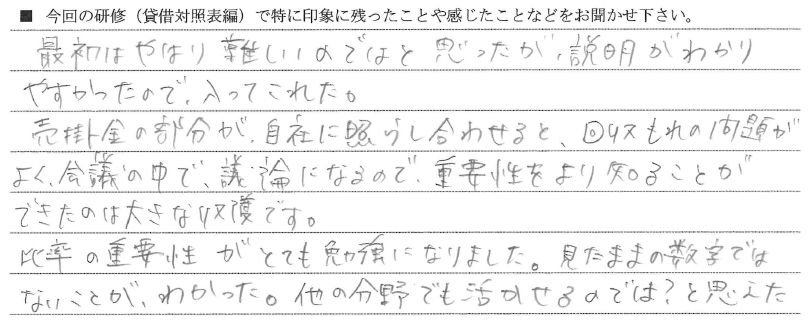 ■ 今回の研修（貸借対照表編）で特に印象に残ったことや感じたことなどをお聞かせ下さい。
最初はやはり難しいのではと思ったが、説明がわかり
やすかったので、入ってこれた。
売掛金の部分が、自社に照らし合わせると、回収もれの問題が
よく、会議の中で、議論になるので、重要性をより知ることが
できたのは大きな収穫です。
比率の重要性がとても勉強になりました。見たままの数字では
ないことが、わかった。他の分野でも活かせるのでは？と思えた